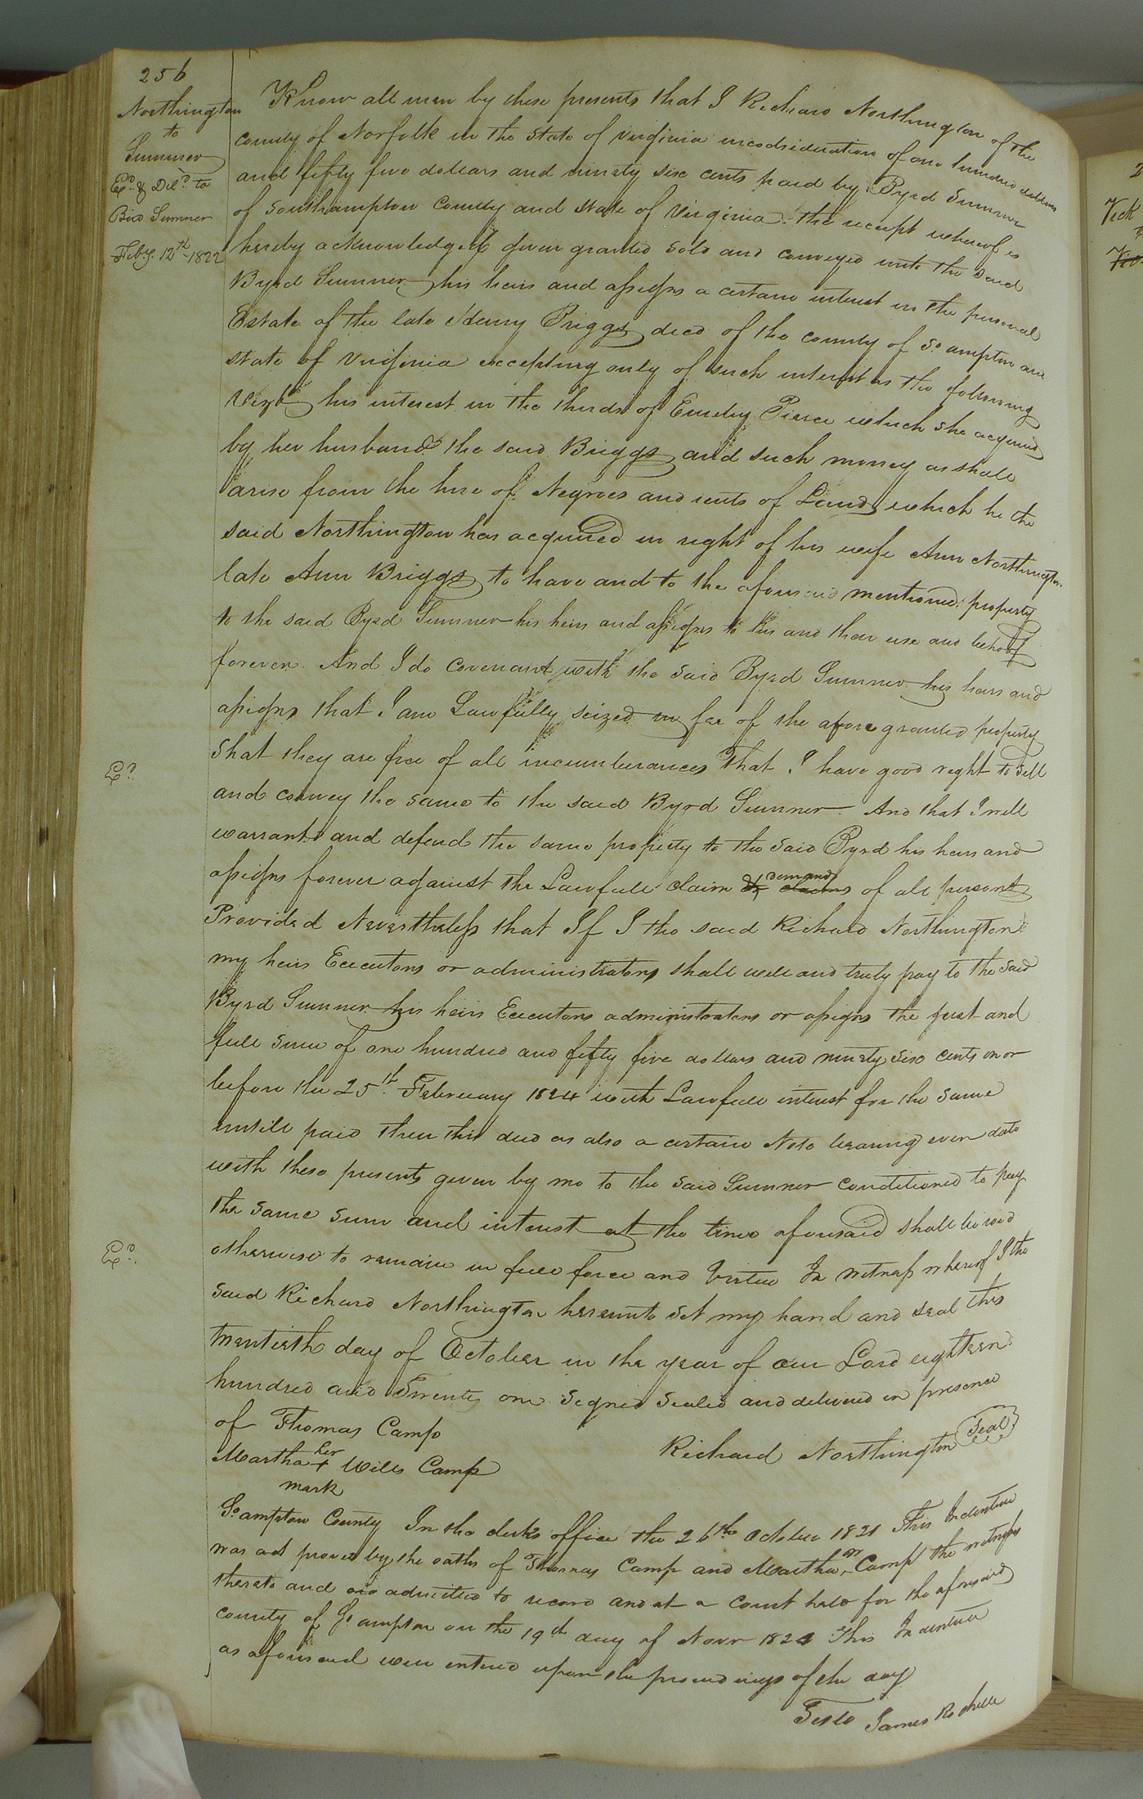 256
Northington
to
Sumner
Exd. & Deld. to
Bird Sumner
Feby. 12th 1822
Know all men by these presents that I Richard Northington of the
county of Norfolk in the State of Virginia in consideration of one hundred dollars
and fifty five dollars and ninety six cents paid by Byrd Sumner
of Southampton County and State of Virginia the receipt whereof is
hereby acknowledged given granted sold and conveyed unto the said
Byrd Sumner his heirs and assigns a certain interest in the personal
Estate of the late Henry Briggs decd of the county of So ampton and
state of Virginia excepting only of such interest as the following
Vizt his interest in the thirds of Emily Pierce which she acquired
by her husband the said Briggs and such money as shall
arise from the hire of Negroes and rents of Land which he the
said Northington has acquired in right of his wife Ann Northington
late Ann Briggs to have and to the aforesaid mentioned property
to the said Byrd Sumner his heirs and assigns to his and their use and behoof
forever. And I do covenant with the said Byrd Sumner his heirs and
assigns that I am Lawfully seized in fee of the afore granted property
that they are free of all incumberances That I have good right to sell
and convey the same to the said Byrd Sumner And that I will
warrant and defend the same property to the said Byrd his heirs and
assigns forever against the Lawfull claim or demand claims of all persons
Provided Neverthelefs that If I the said Richard Northington
my heirs Executors or administrators shall well and truly pay to the said
Byrd Sumner his heirs Executors administrators or assigns the just and
full sum of one hundred and fifty five dollars and ninety six cents on or
before the 25th February 1824 with Lawfull interest for the same
untill paid then this deed as also a certain Note bearing even date
with these presents given by me to the said Sumner conditioned to pay
the same sum and interest at the time aforesaid shall be void
otherwise to remain in full force and Virtue In witnefs whereof I the
said Richard Northington hereunto set my hand and seal this
twentieth day of October in the year of our Lord eighteen
hundred and Twenty one Signed Sealed and delivered in presence
of Thomas Camp
Richard Northington Seal
Martha her + Wills Camp
mark
So ampton County In the clerks office the 26th October 1821 This Indenture
was ack proved by the oaths of Thomas Camp and Martha W Camp the witnefses
thereto and adimitted to record and at a Court held for the aforesaid
county of So ampton on the 19th day of Novr 1821 This Indenture
as aforesaid was entered upon the proceedings of the day
Teste James Rochelle
Exd.
Exd.